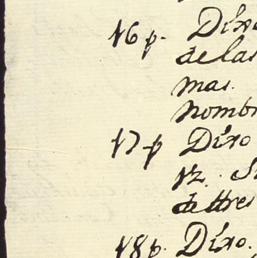 16 p. Dixo
de las
mas.
nombr
17 p Dixo
de tres
18 p. Dixo.